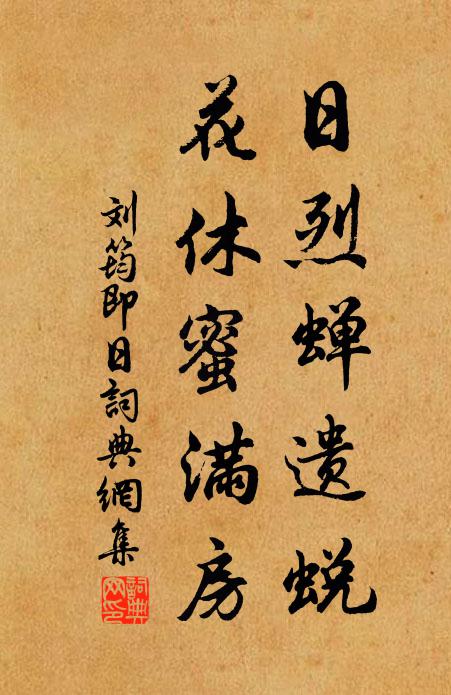 日烈蝉遗蜕
花休蜜满房
刘筠即日詞典網集
詞典
网印